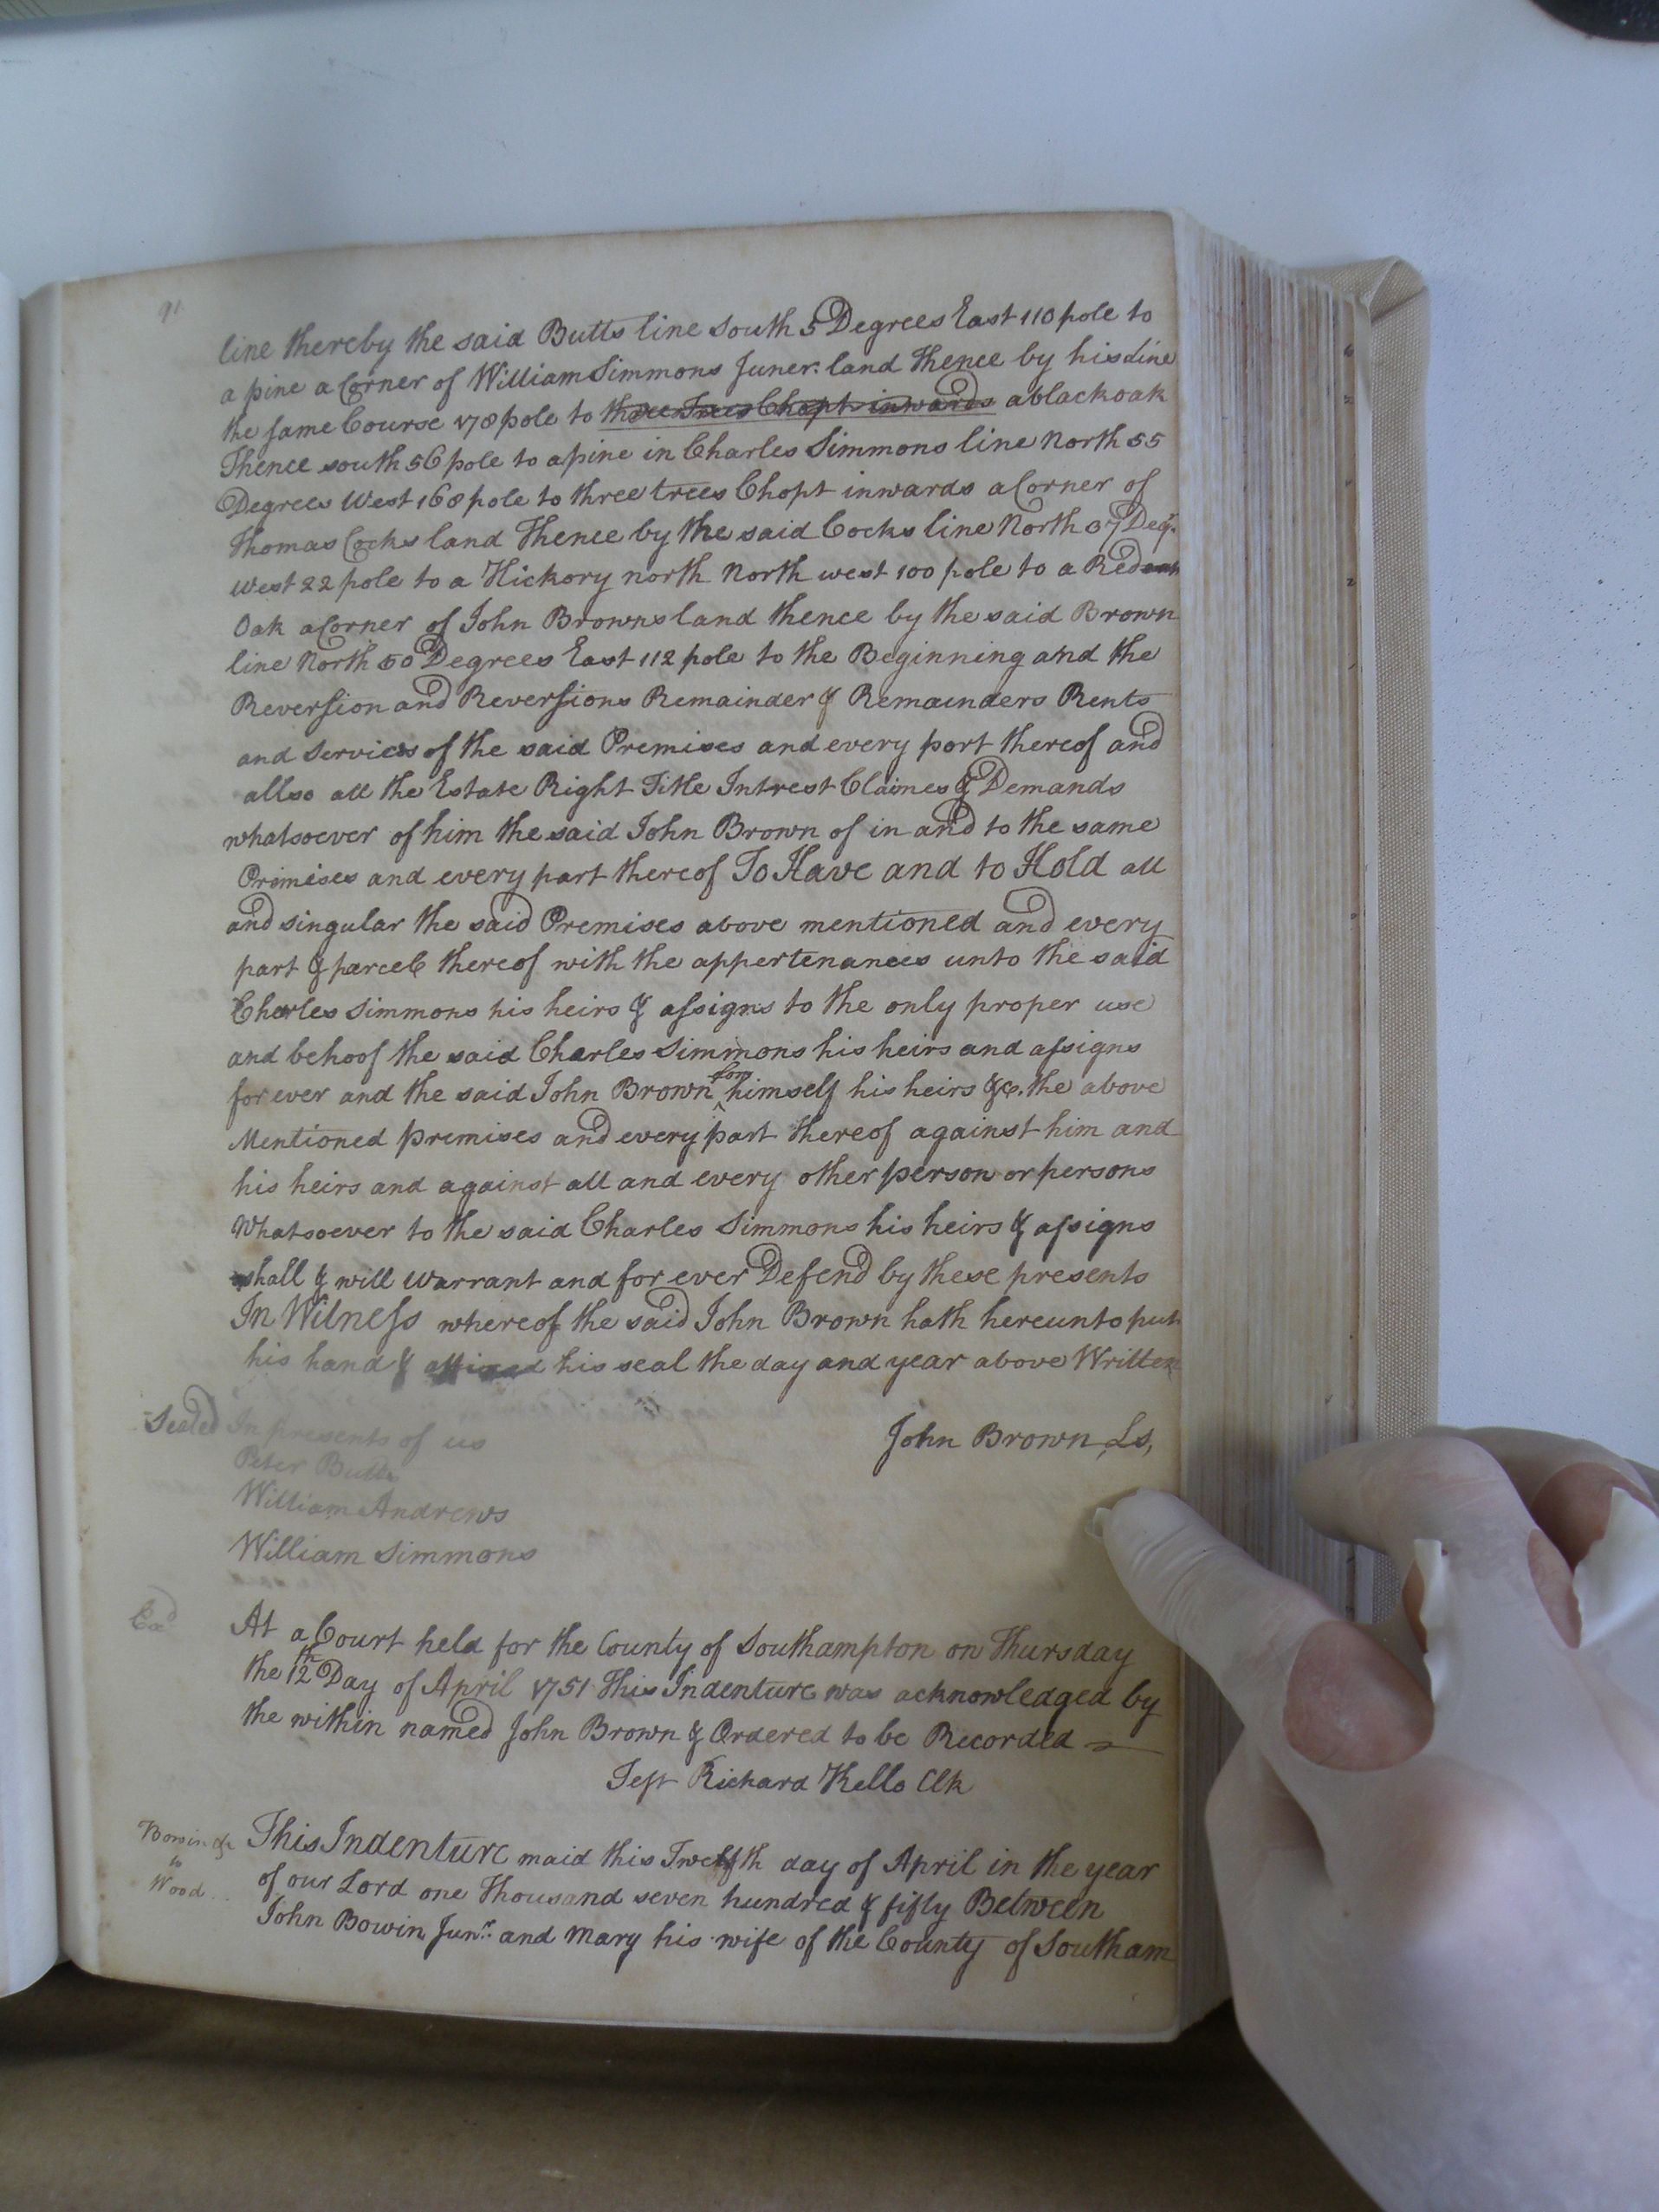 91
line thereby the said Butts line South 5 Degrees East 110 pole to
a pine a Corner of William Simmons Juner. land Thence by his Line
the same Course 178 pole to three Trees Chopt inwards a black oak
Thence south 56 pole to a pine in Charles Simmons line North 55
Degrees West 168 pole to three trees Chopt inwards a Corner of
Thomas Cocks land Thence by the said Cocks line North 37 Deg.
West 22 pole to a Hickory north North west 100 pole to a Red
Oak a Corner of John Browns land thence by the said Brown
line North 50 Degrees East 112 pole to the Beginning and the
Reversion and Reversions Remainder & Remaınders Rents
and Services of the said Premises and every part thereof and
allso all the Estate Right Title Intrest Claimes & Demands
whatsoever of him the said John Brown of in and to the same
Primises and every part thereof To Have and to Hold all
and singular the said Premises above mentioned and every
part & parcele thereof with the appertenances unto the said
Charles Simmons his heirs & assigns to the only proper use
and behoof the said Charles Simmons his heirs and assigns
for ever and the said John Brown for himself his heirs &c. the above
Mentioned premises and every part thereof against him and
his heirs and against all and every other person or persons
Whatsoever to the said Charles Simmons his heirs & assigns
shall & will warrant and for ever Defend by these presents
In Witness whereof the said John Brown hath hereunto put
his hand & affixed his seal the day and year above Written
Sealed In presents of us
John Brown, Ls,
Peter Butts
William Andrews
William Simmons
Exd
At a Court held for the County of Southampton on Thursday
the 12th Day of April 1751 This Indenture was acknowledged by
the within named John Brown & Ordered to be Recorded
Test Richard Kello Clk
Bowin &c
to
Wood
This Indenture maid this Twelfth day of April in the year
of our Lord one Thousand seven hundred & fifty Between
John Bowin Junr. and Mary his wife of the County of Southam